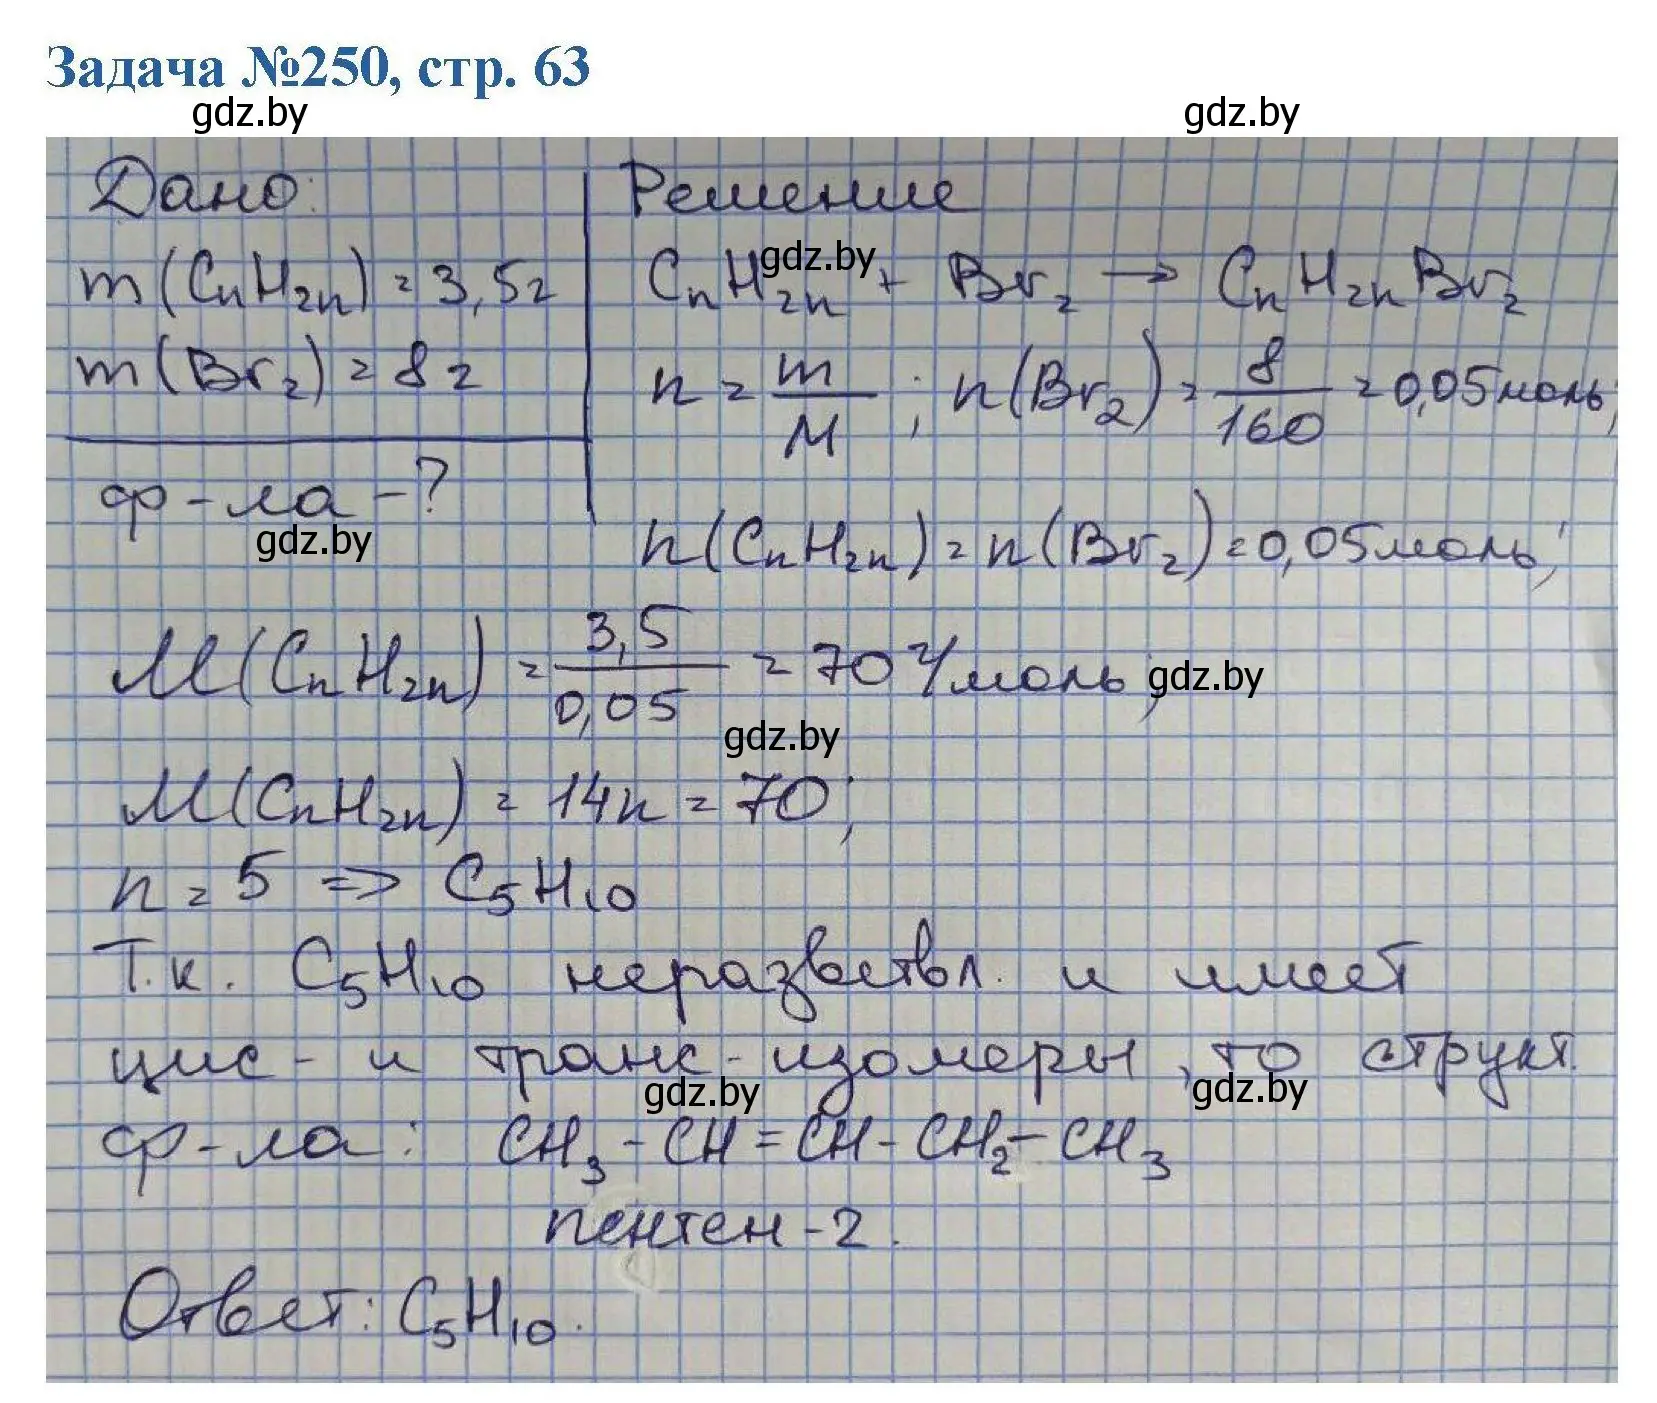 Задача №250, стр. 63
gdz.by gdz.by
Дано: Решение
gdz.by
m(CnH2n) = 3,5г CnH2n + Br2 → CnH2nBr2
m(Br2) = 8г n = m/M ; n(Br2) = 8/160 = 0,05моль;
ф-ла-?
gdz.by
n(CnH2n) = n(Br2) = 0,05моль;
M(CnH2n) = 3,5/0,05 = 70 г/моль; gdz.by
gdz.by
M(CnH2n) = 14n = 70;
n = 5 => C5H10
Т.к. C5H10 неразветвл. и имеет
цис- и транс-изомеры, то структ.
gdz.by gdz.by
ф-ла: CH3-CH=CH-CH2-CH3
пентен-2.
Ответ: C5H10.